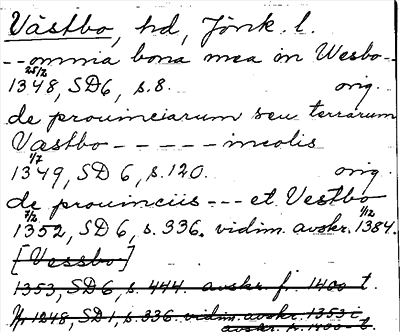 Västbo, hd, Jönk. l.
-- omnia bona mea in Wesbo --
25/2
1348, SD 6, s. 8. orig.
de prouinciarum seu terrarum
Væstbo ----- incolis
1/7
1349, SD 6, s. 120. orig.
de prouinciis --- et Vestbo
7/2 9/12
1352, SD 6, s. 336. vidim. avskr. 1384.
[Vessbo]
1353, SD 6, s. 444. avskr. fr. 1400 t.
1248, SD 1, s. 336 vidim. avskr. 1353 i
avskr. fr. 1400 t.